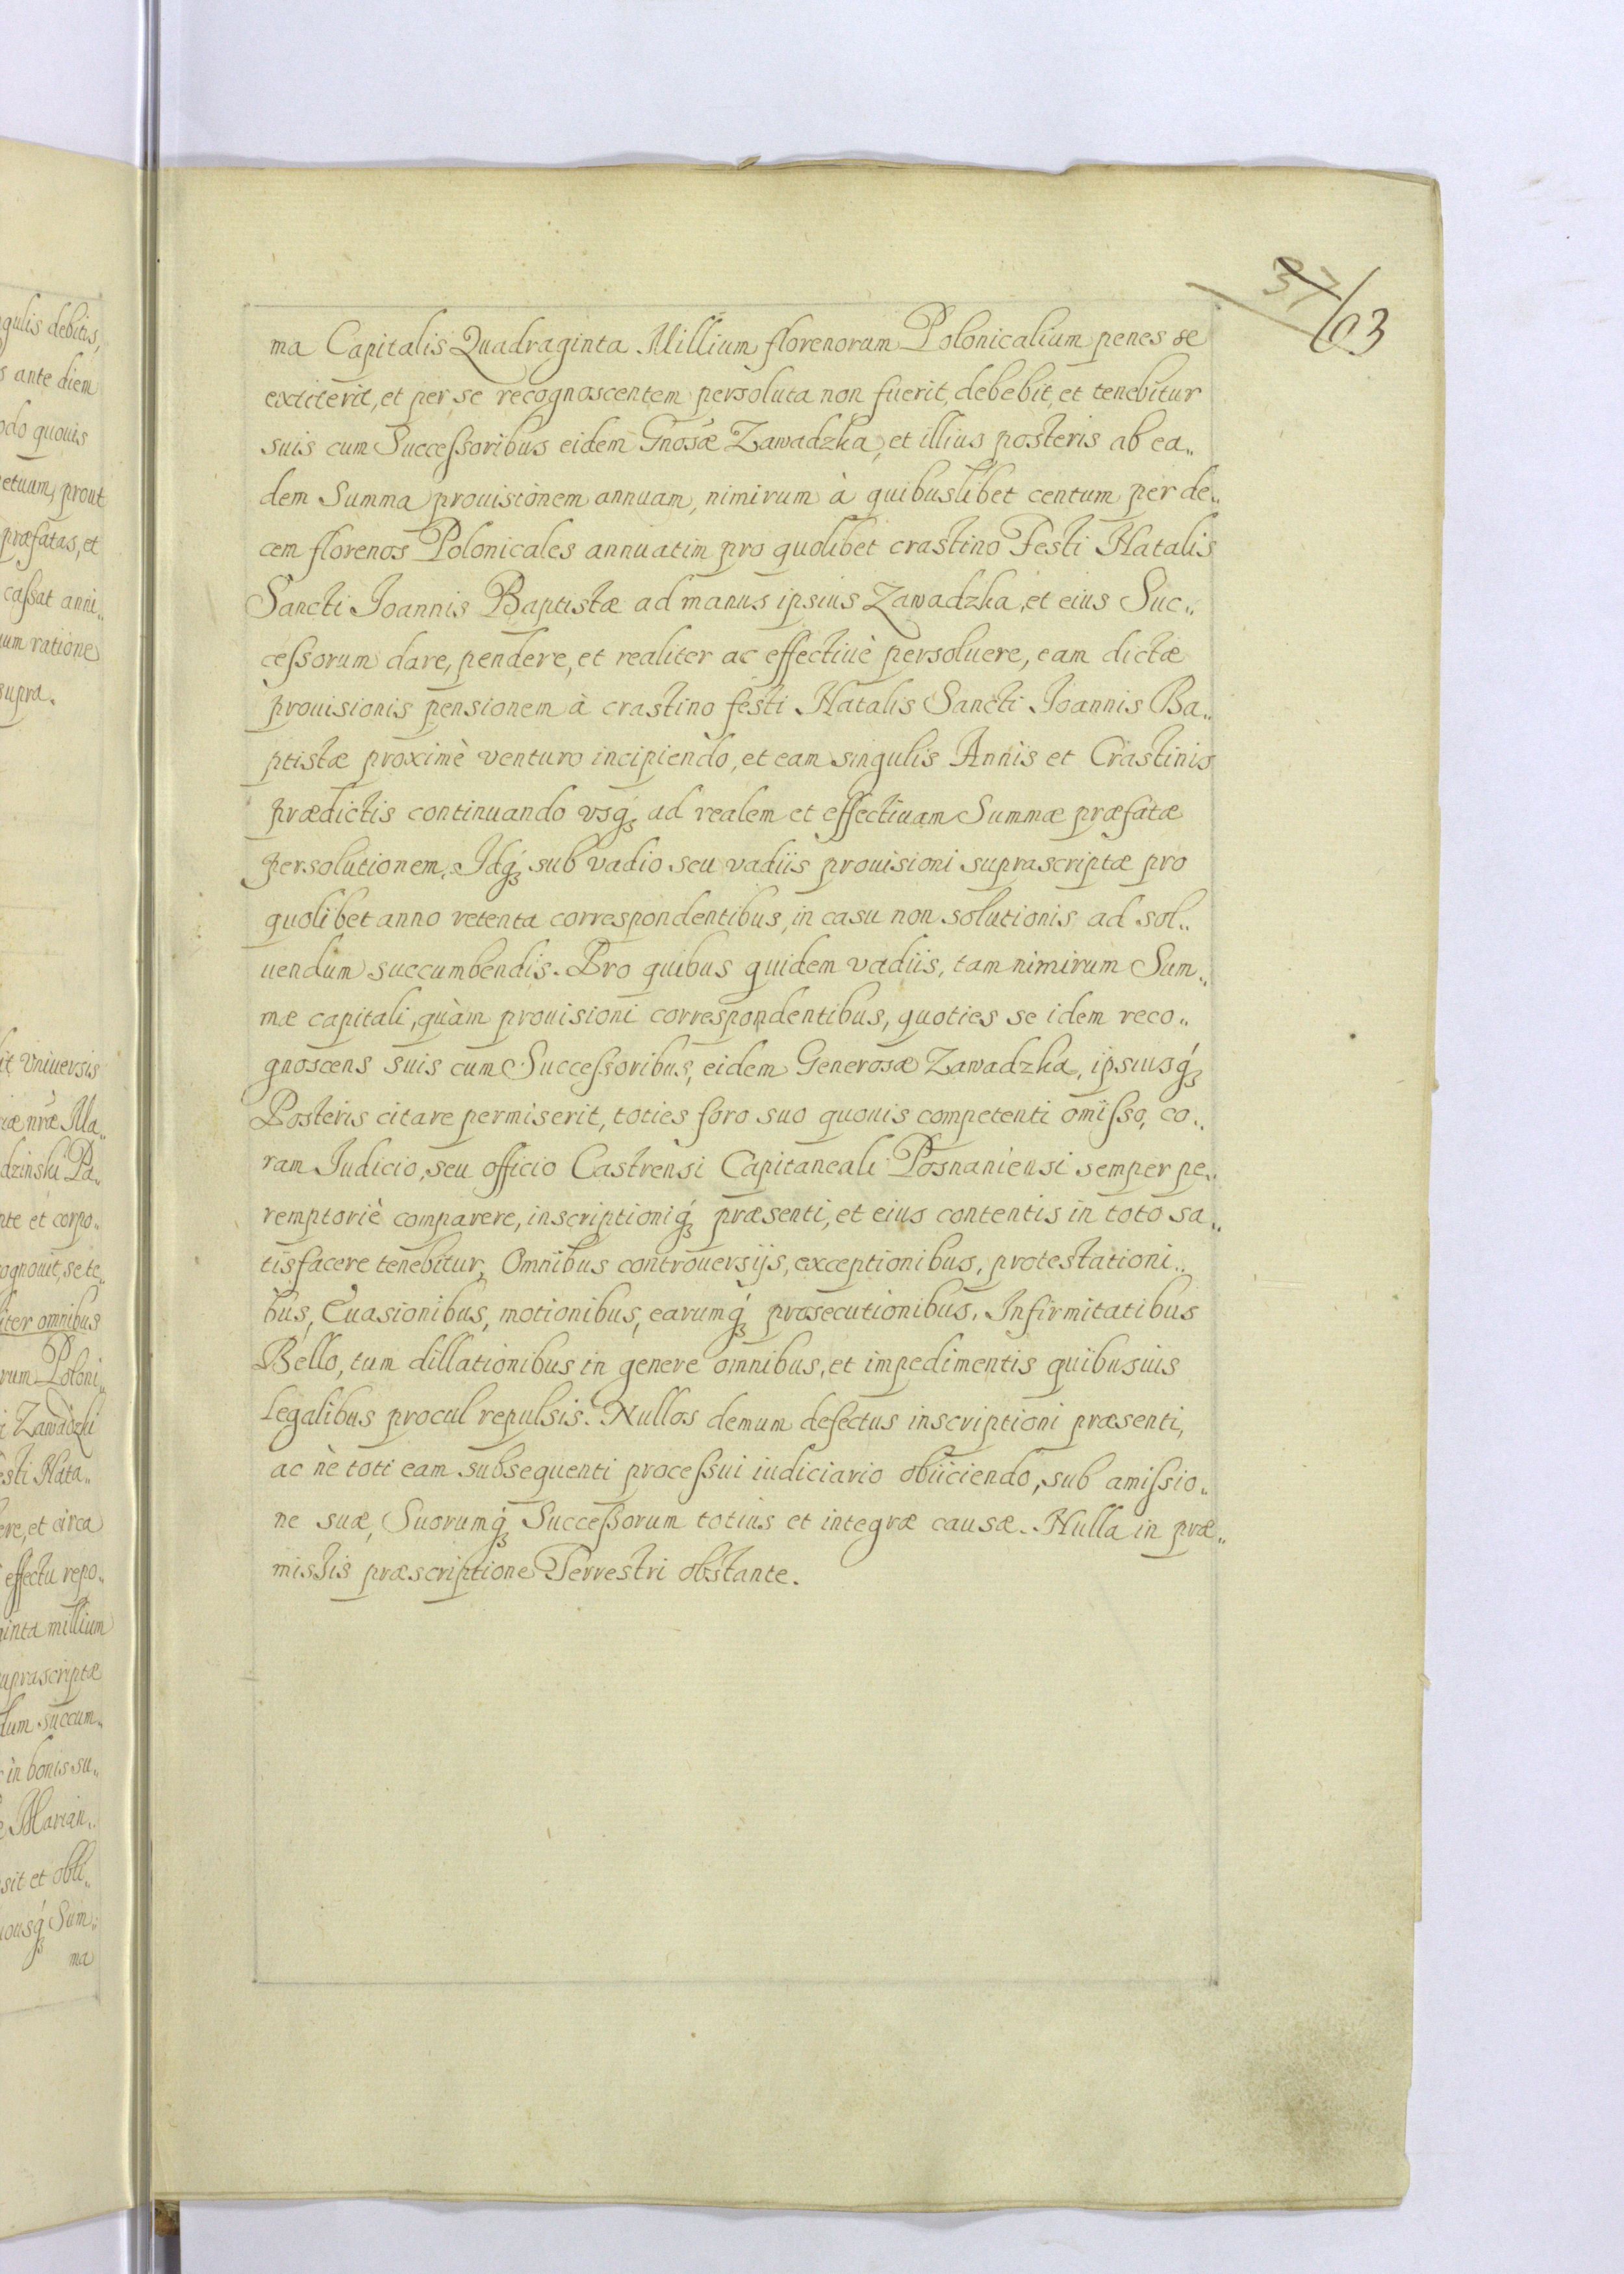 37
103
ma Capitalis Quadraginta Millium florenorum Polonicalium penes se
extiterit, et per se recognoscentem persoluta non fuerit, debebit, et tenebitur
suis cum Successoribus eidem Gnosæ Zawadzka, et illius posteris ab ea„
dem Summa prouisionem annuam, nimirum à quibuslibet centum per de„
cem florenos Polonicales annuatim pro quolibet crastino Festi Natalis
Sancti Joannis Baptistæ ad manus ipsius Zawadzka, et eius Suc„
cessorum dare, pendere, et realiter ac effectiuè persoluere, eam dictæ
prouisionis pensionem à crastino festi Natalis Sancti Joannis Ba„
ptistæ proximè venturo incipiendo, et eam singulis Annis et Crastinis
prædictis continuando vsq́ꝫ ad realem et effectiuam Summæ præfatæ
persolutionem. Idq́ꝫ sub vadio seu vadiis prouisioni suprascriptæ pro
quolibet anno retenta correspondentibus, in casu non solutionis ad sol„
uendum succumbendis. Pro quibus quidem vadiis, tam nimirum Sum„
mæ capitali, quàm prouisioni correspondentibus, quoties se idem reco„
gnoscens suis cum Successoribus, eidem Generosæ Zawadzka, ipsiusq́ꝫ
Posteris citare permiserit, toties foro suo quouis competenti omisso, co„
ram Judicio, seu officio Castrensi Capitaneali Posnaniensi semper pe„
remptoriè comparere, inscriptioniq́ꝫ præsenti, et eius contentis in toto sa„
tisfacere tenebitur, Omnibus controuersijs, exceptionibus, protestationi„
bus, Euasionibus, motionibus, earumq́ꝫ prosecutionibus, Infirmitatibus
Bello, tum dillationibus in genere omnibus, et impedimentis quibusuis
Legalibus procul repulsis. Nullos demum defectus inscriptioni præsenti,
ac nè toti eam subsequenti processui iudiciario obiiciendo, sub amissio„
ne suæ, Suorumq́ꝫ Successorum totius et integræ causæ. Nulla in præ„
missis præscriptione Terrestri obstante.